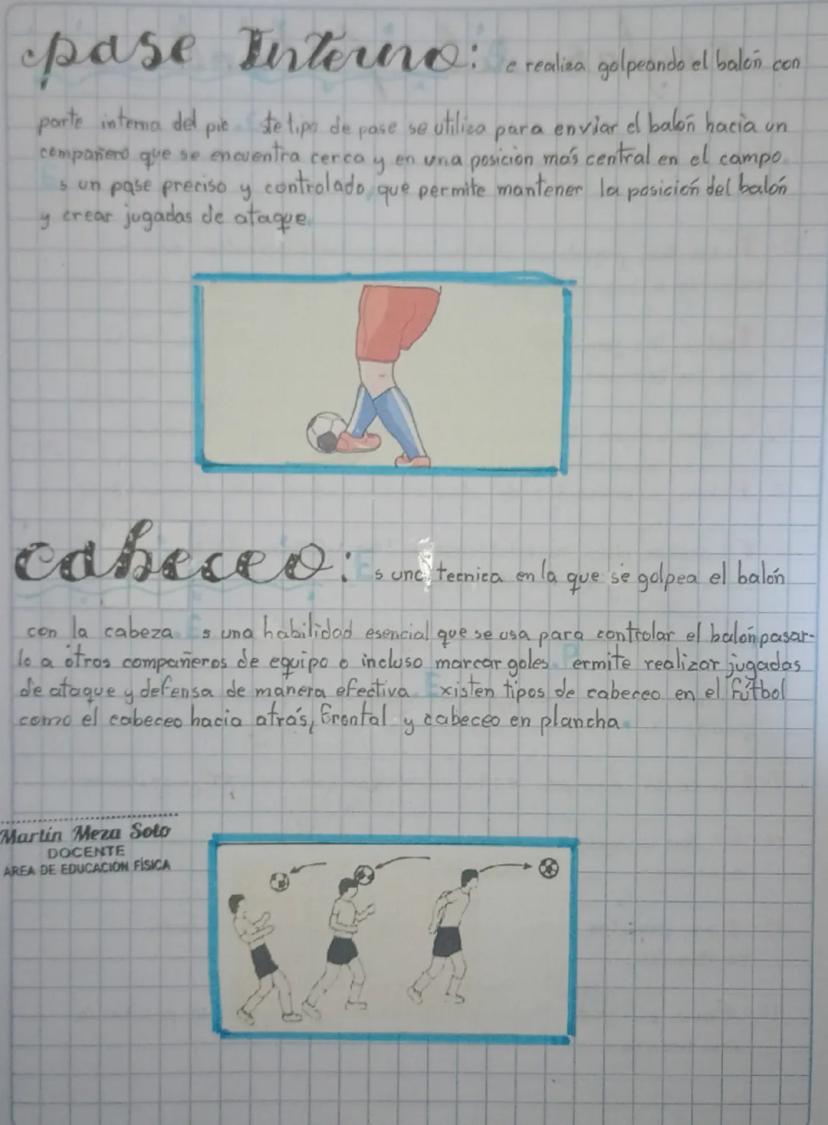 pase Interno: Se realiza golpeando el balón con
parte interna del pie Este tipo de pase se utiliza para enviar el balón hacia un
compañero que se encuentra cerca y en una posición más central en el campo.
Es un pase preciso y controlado, que permite mantener la posición del balón
y crear jugadas de ataque.
cabeceo: Es una tecnica en la que se golpea el balón
con la cabeza. Es una habilidad esencial que se usa para controlar el balón pasar-
lo a otros compañeros de equipo o incluso marcar goles. Permite realizar jugadas
de ataque y defensa de manera efectiva. Existen tipos de cabeceo en el fútbol
como el cabeceo hacia atrás, frontal y cabeceo en plancha.
Martín Meza Soto
DOCENTE
AREA DE EDUCACIÓN FÍSICA